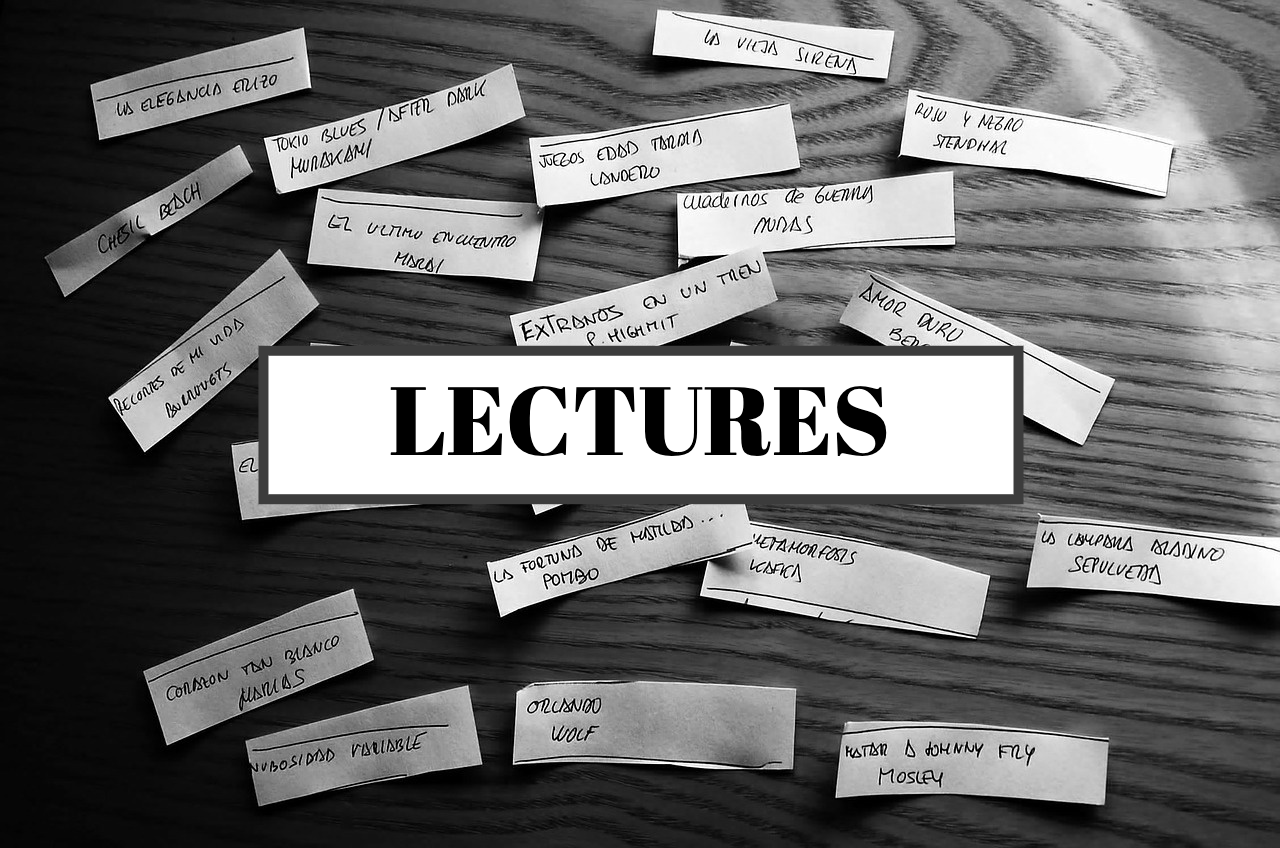 LA VIEJA SIRENA
LA ELEGANCIA ERIZO
TOKIO BLUES / AFTER DARK
MURAKAMI
JUEGOS EDAD TARDIA
LANDERO
ROJO Y NEGRO
STENDHAL
CHESIL BEACH
EL ULTIMO ENCUENTRO
MARAI
Cuadernos de GUERRA
DURAS
EXTRANOS EN UN TREN
P. HIGHMIT
AMOR DURO
RECORTES DE MI VIDA
BURROUGTS
LECTURES
EL
LA FORTUNA DE MATILDA ...
POMBO
METAMORFOSIS
KAFKA
LA LAMPARA ALADINO
SEPULVEDA
CORAZON TAN BLANCO
MARIAS
NUBOSIDAD VARIABLE
ORLANDO
WOLF
MATAR A JOHNNY FRY
MOSLEY